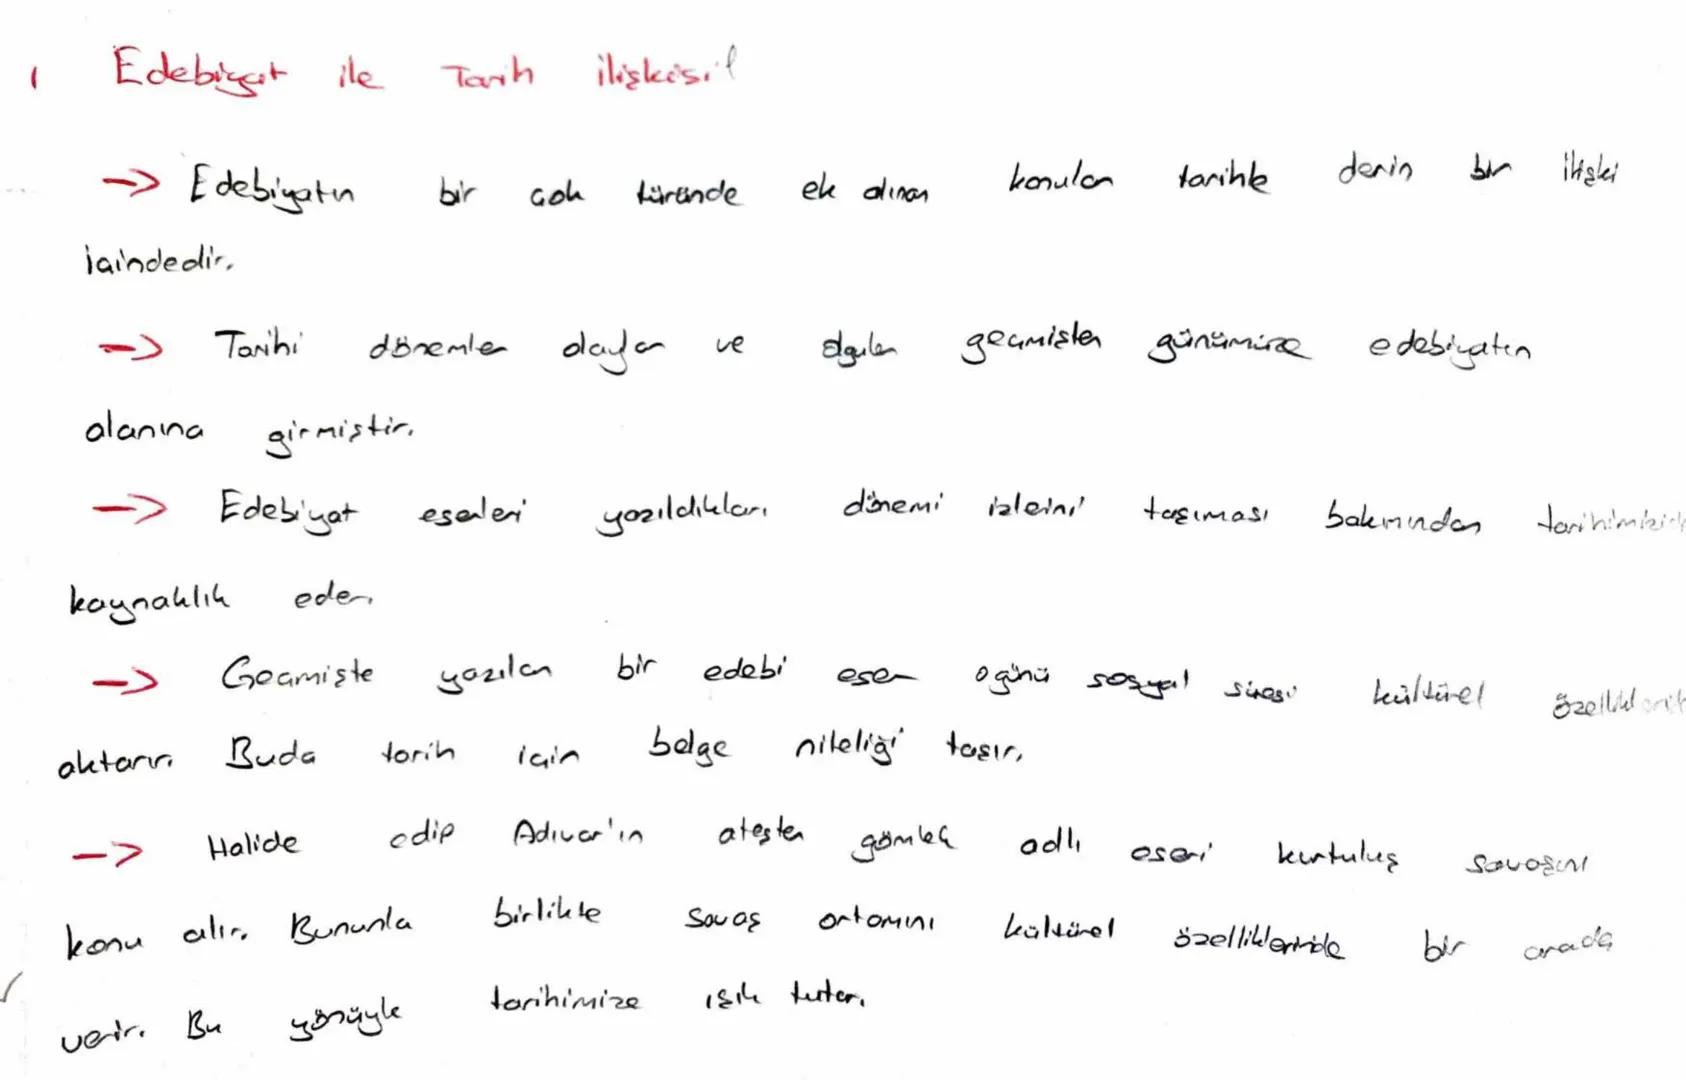 1 Edebiyat ile Tarih ilişkisi!
→ Edebiyatın bir çok türünde ek alınan konular tarihle derin bir ilişki
içindedir.
→ Tarihi dönemler olaylar ve olgular geçmişten günümüze edebiyatın
alanına girmiştir.
→ Edebiyat eserleri yazıldıkları dönemi izleini taşıması bakımından
kaynaklık eder.
→ Geçmişte yazılan bir edebi eser o günü sosyal siyasi kültürel
aktarır. Buda tarih için belge niteliği taşır.
→ Halide edip Adıvar'ın ateşten gömlek adlı eseri kurtuluş savaşını
konu alır. Bununla birlikte savaş ortamını kültürel özelliklerinide bir arada
verir. Bu yönüyle tarihimize ışık tutar.